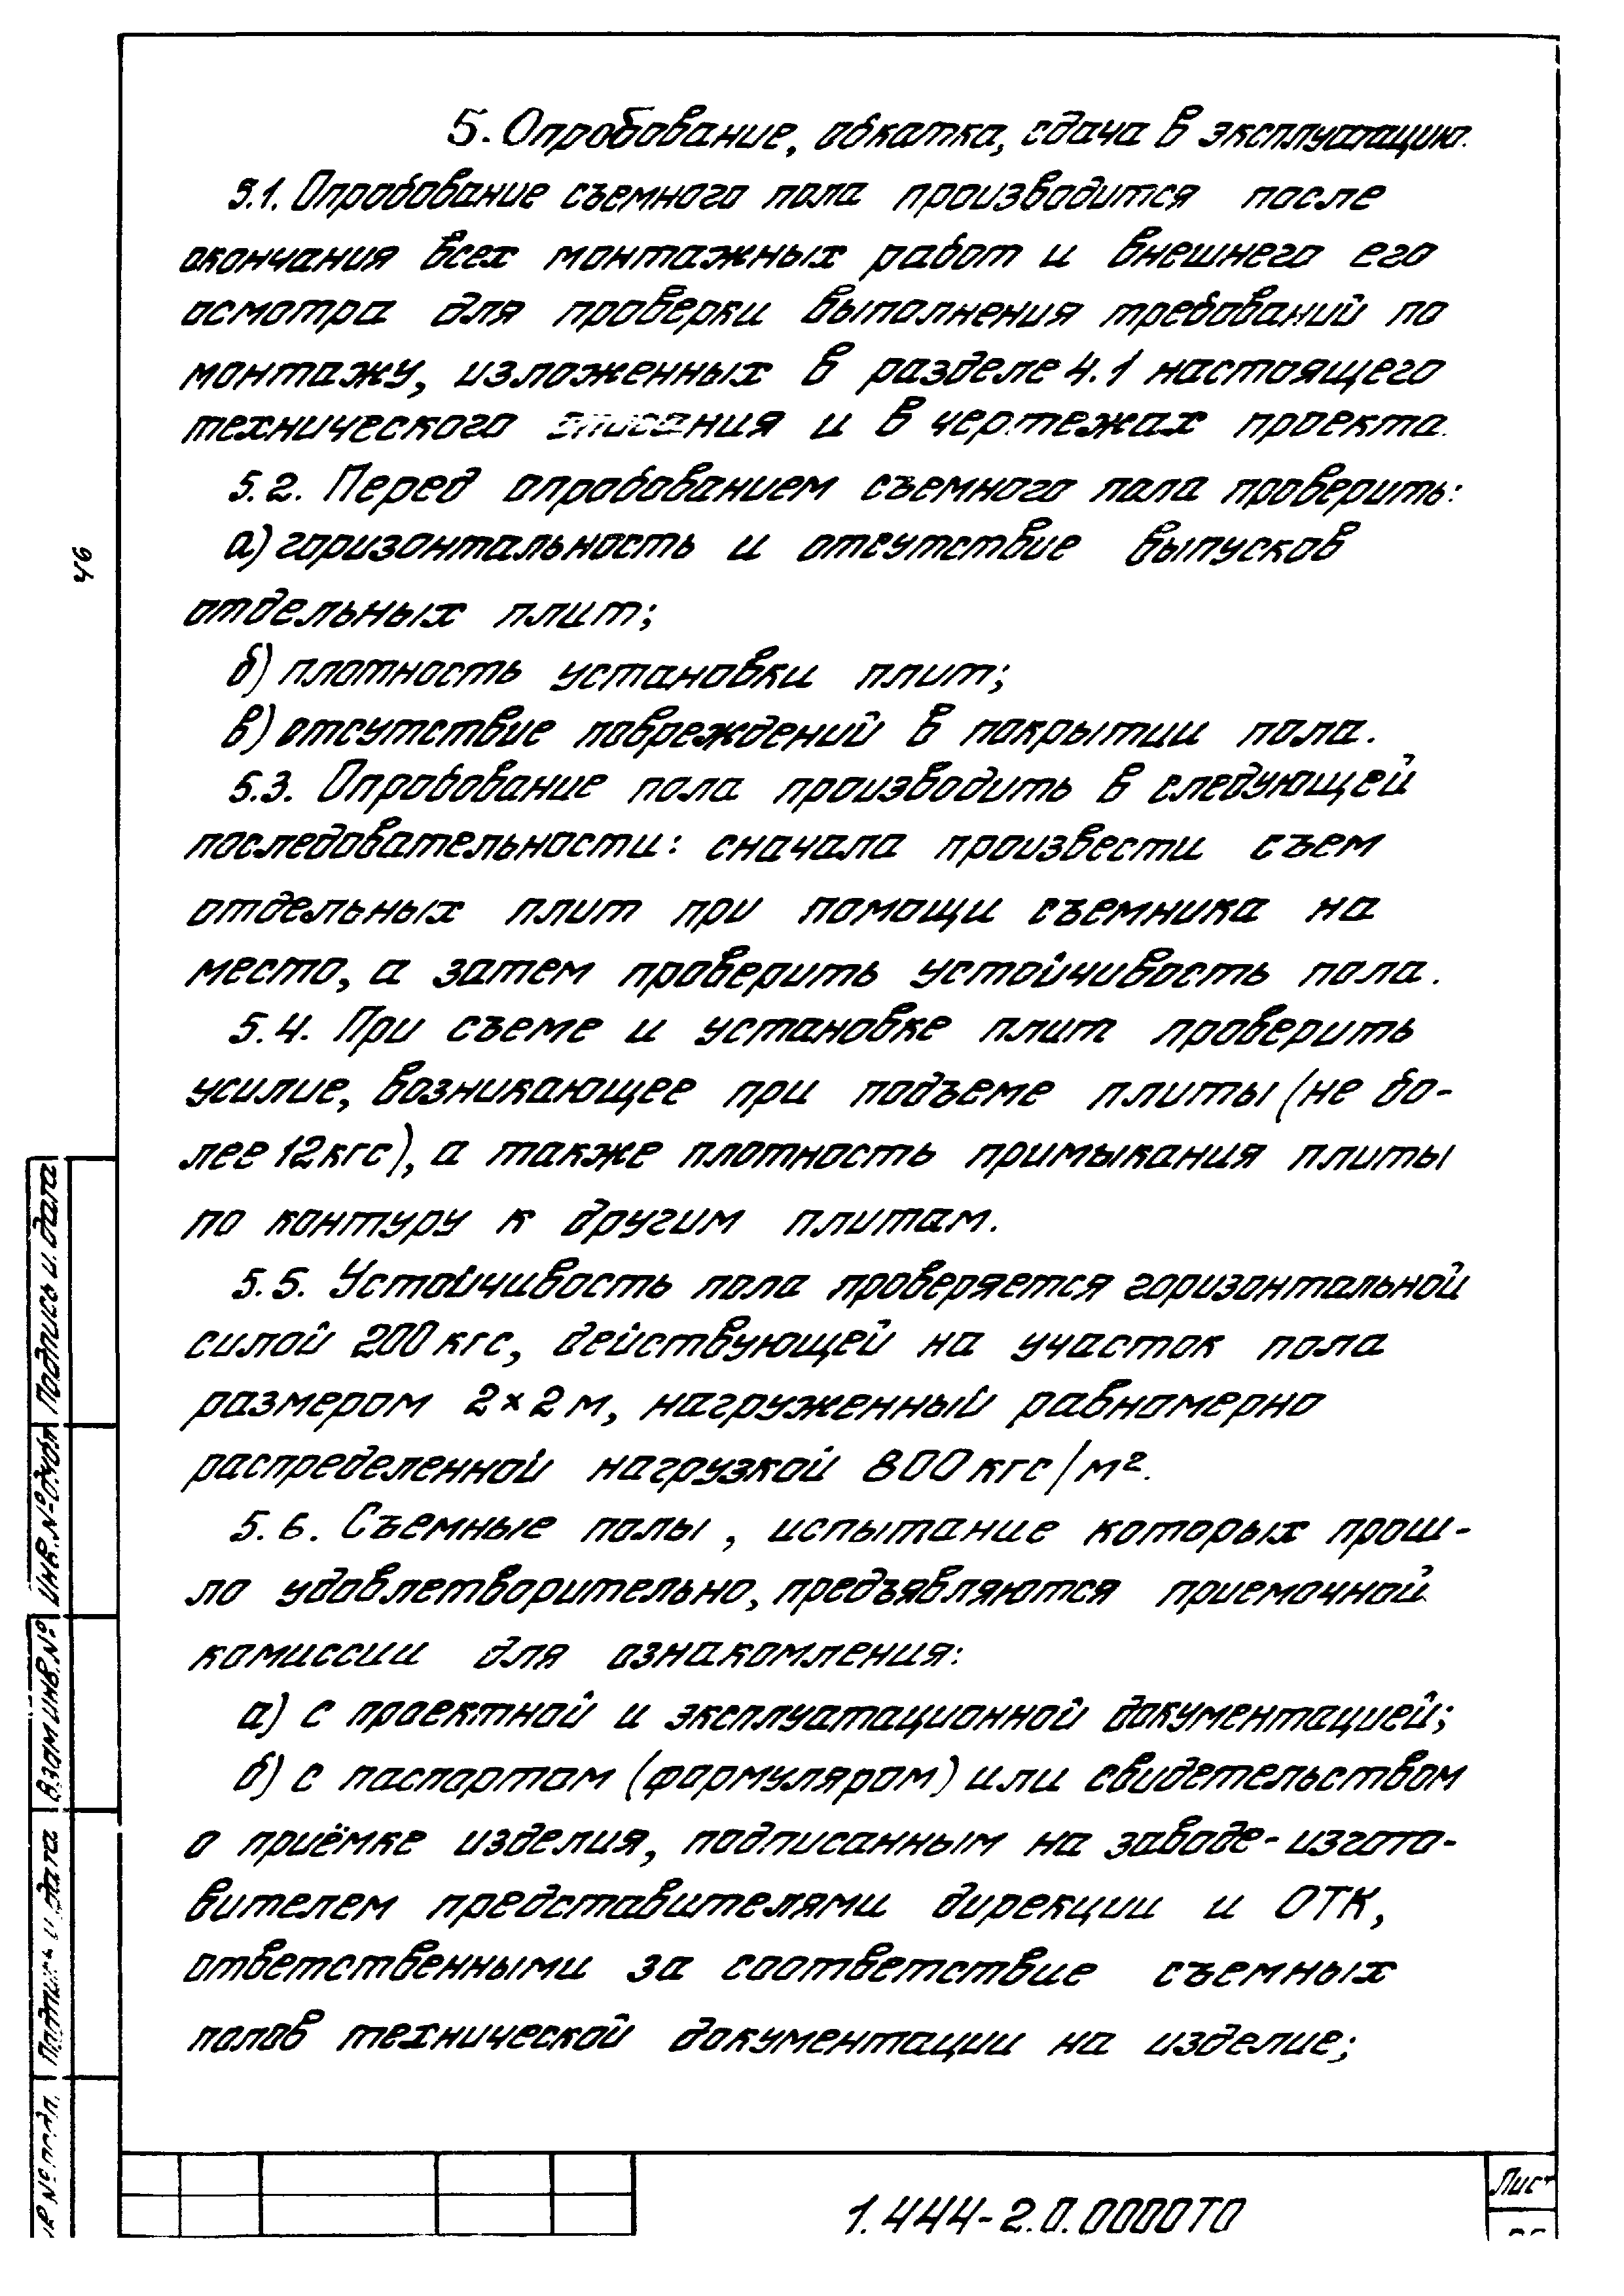 5. Опробование, обкатка, сдача в эксплуатацию.
5.1. Опробование съемного пола производится после
окончания всех монтажных работ и внешнего его
осмотра для проверки выполнения требований по
монтажу, изложенных в разделе 4.1 настоящего
технического описания и в чертежах проекта.
5.2. Перед опробованием съемного пола проверить:
а) горизонтальность и отсутствие выпусков
отдельных плит;
б) плотность установки плит;
в) отсутствие повреждений в покрытии пола.
5.3. Опробование пола производить в следующей
последовательности: сначала произвести съем
отдельных плит при помощи съемника на
место, а затем проверить устойчивость пола.
5.4. При съеме и установке плит проверить
усилие, возникающее при подъеме плиты (не бо-
лее 12 кгс), а также плотность примыкания плиты
по контуру к другим плитам.
5.5. Устойчивость пола проверяется горизонтальной
силой 200 кгс, действующей на участок пола
размером 2×2 м, нагруженный равномерно
распределенной нагрузкой 800 кгс/м².
5.6. Съемные полы, испытание которых прош-
ло удовлетворительно, предъявляются приемочной
комиссии для ознакомления:
а) с проектной и эксплуатационной документацией;
б) с паспортом (формуляром) или свидетельством
о приёмке изделия, подписанным на заводе-изгото-
вителем представителями дирекции и ОТК,
ответственными за соответствие съемных
полов технической документации на изделие;
46
Подпись и дата
Инв. № дубл
Взам инв. №
Подпись и дата
№ подл.
1.444-2.0.0000ТО
Лист